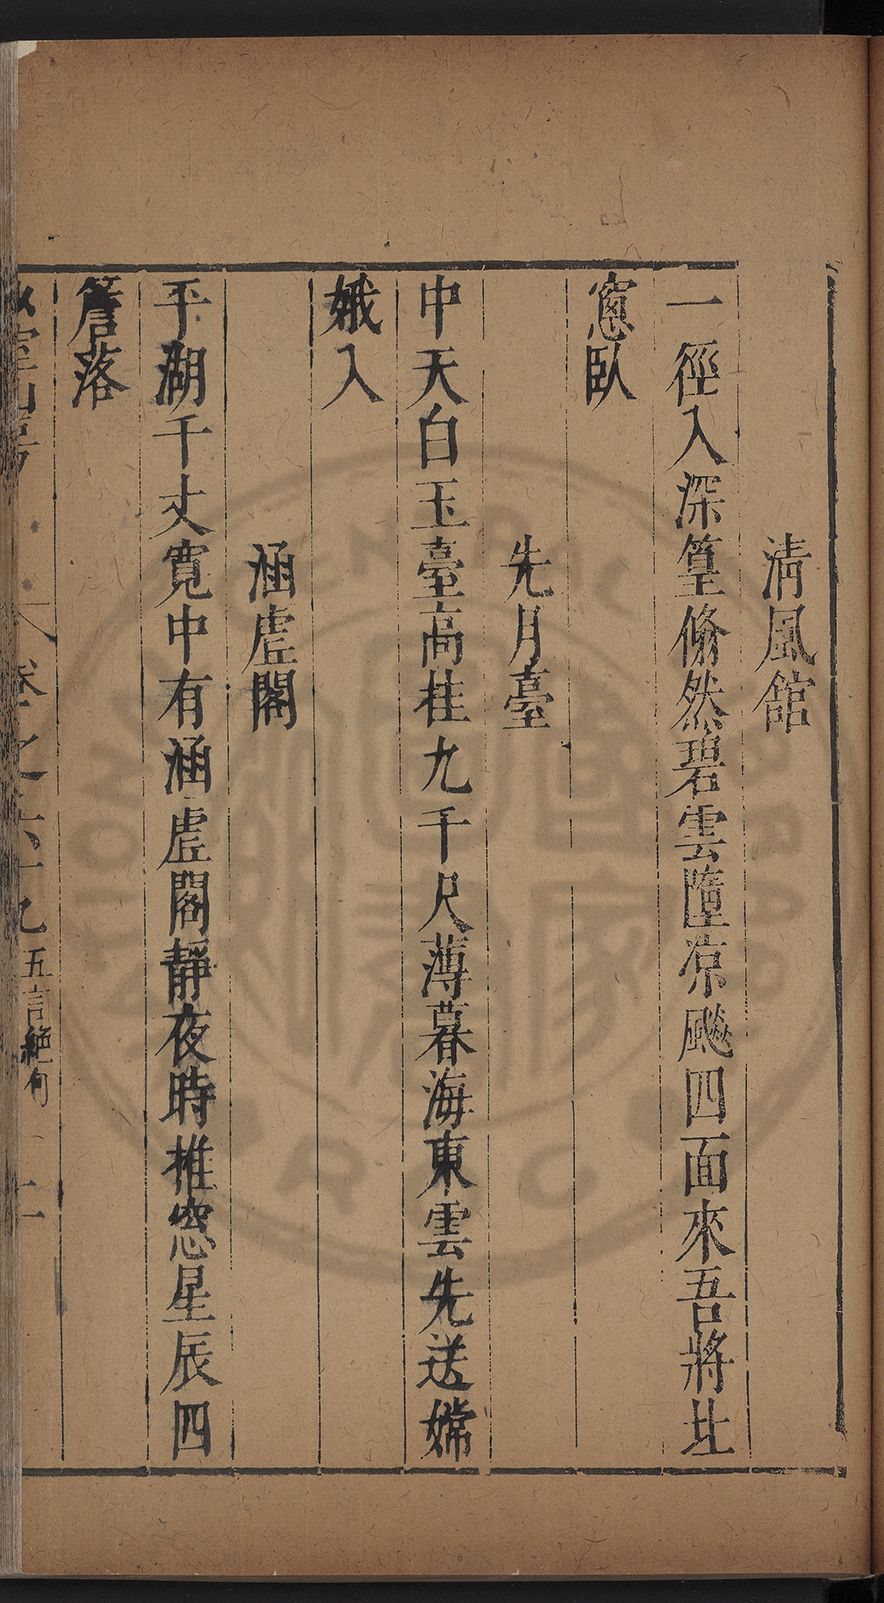 清風館
一徑入深篁翛然碧雲墮涼飈四面來吾將北
窻臥
先月臺
中天白玉臺高桂九千尺薄暮海東雲先送嫦
娥入
涵虛閣
平湖千丈寬中有涵虛閣靜夜時推窓星辰四
簷落
卷之六十九 五言絶句 二